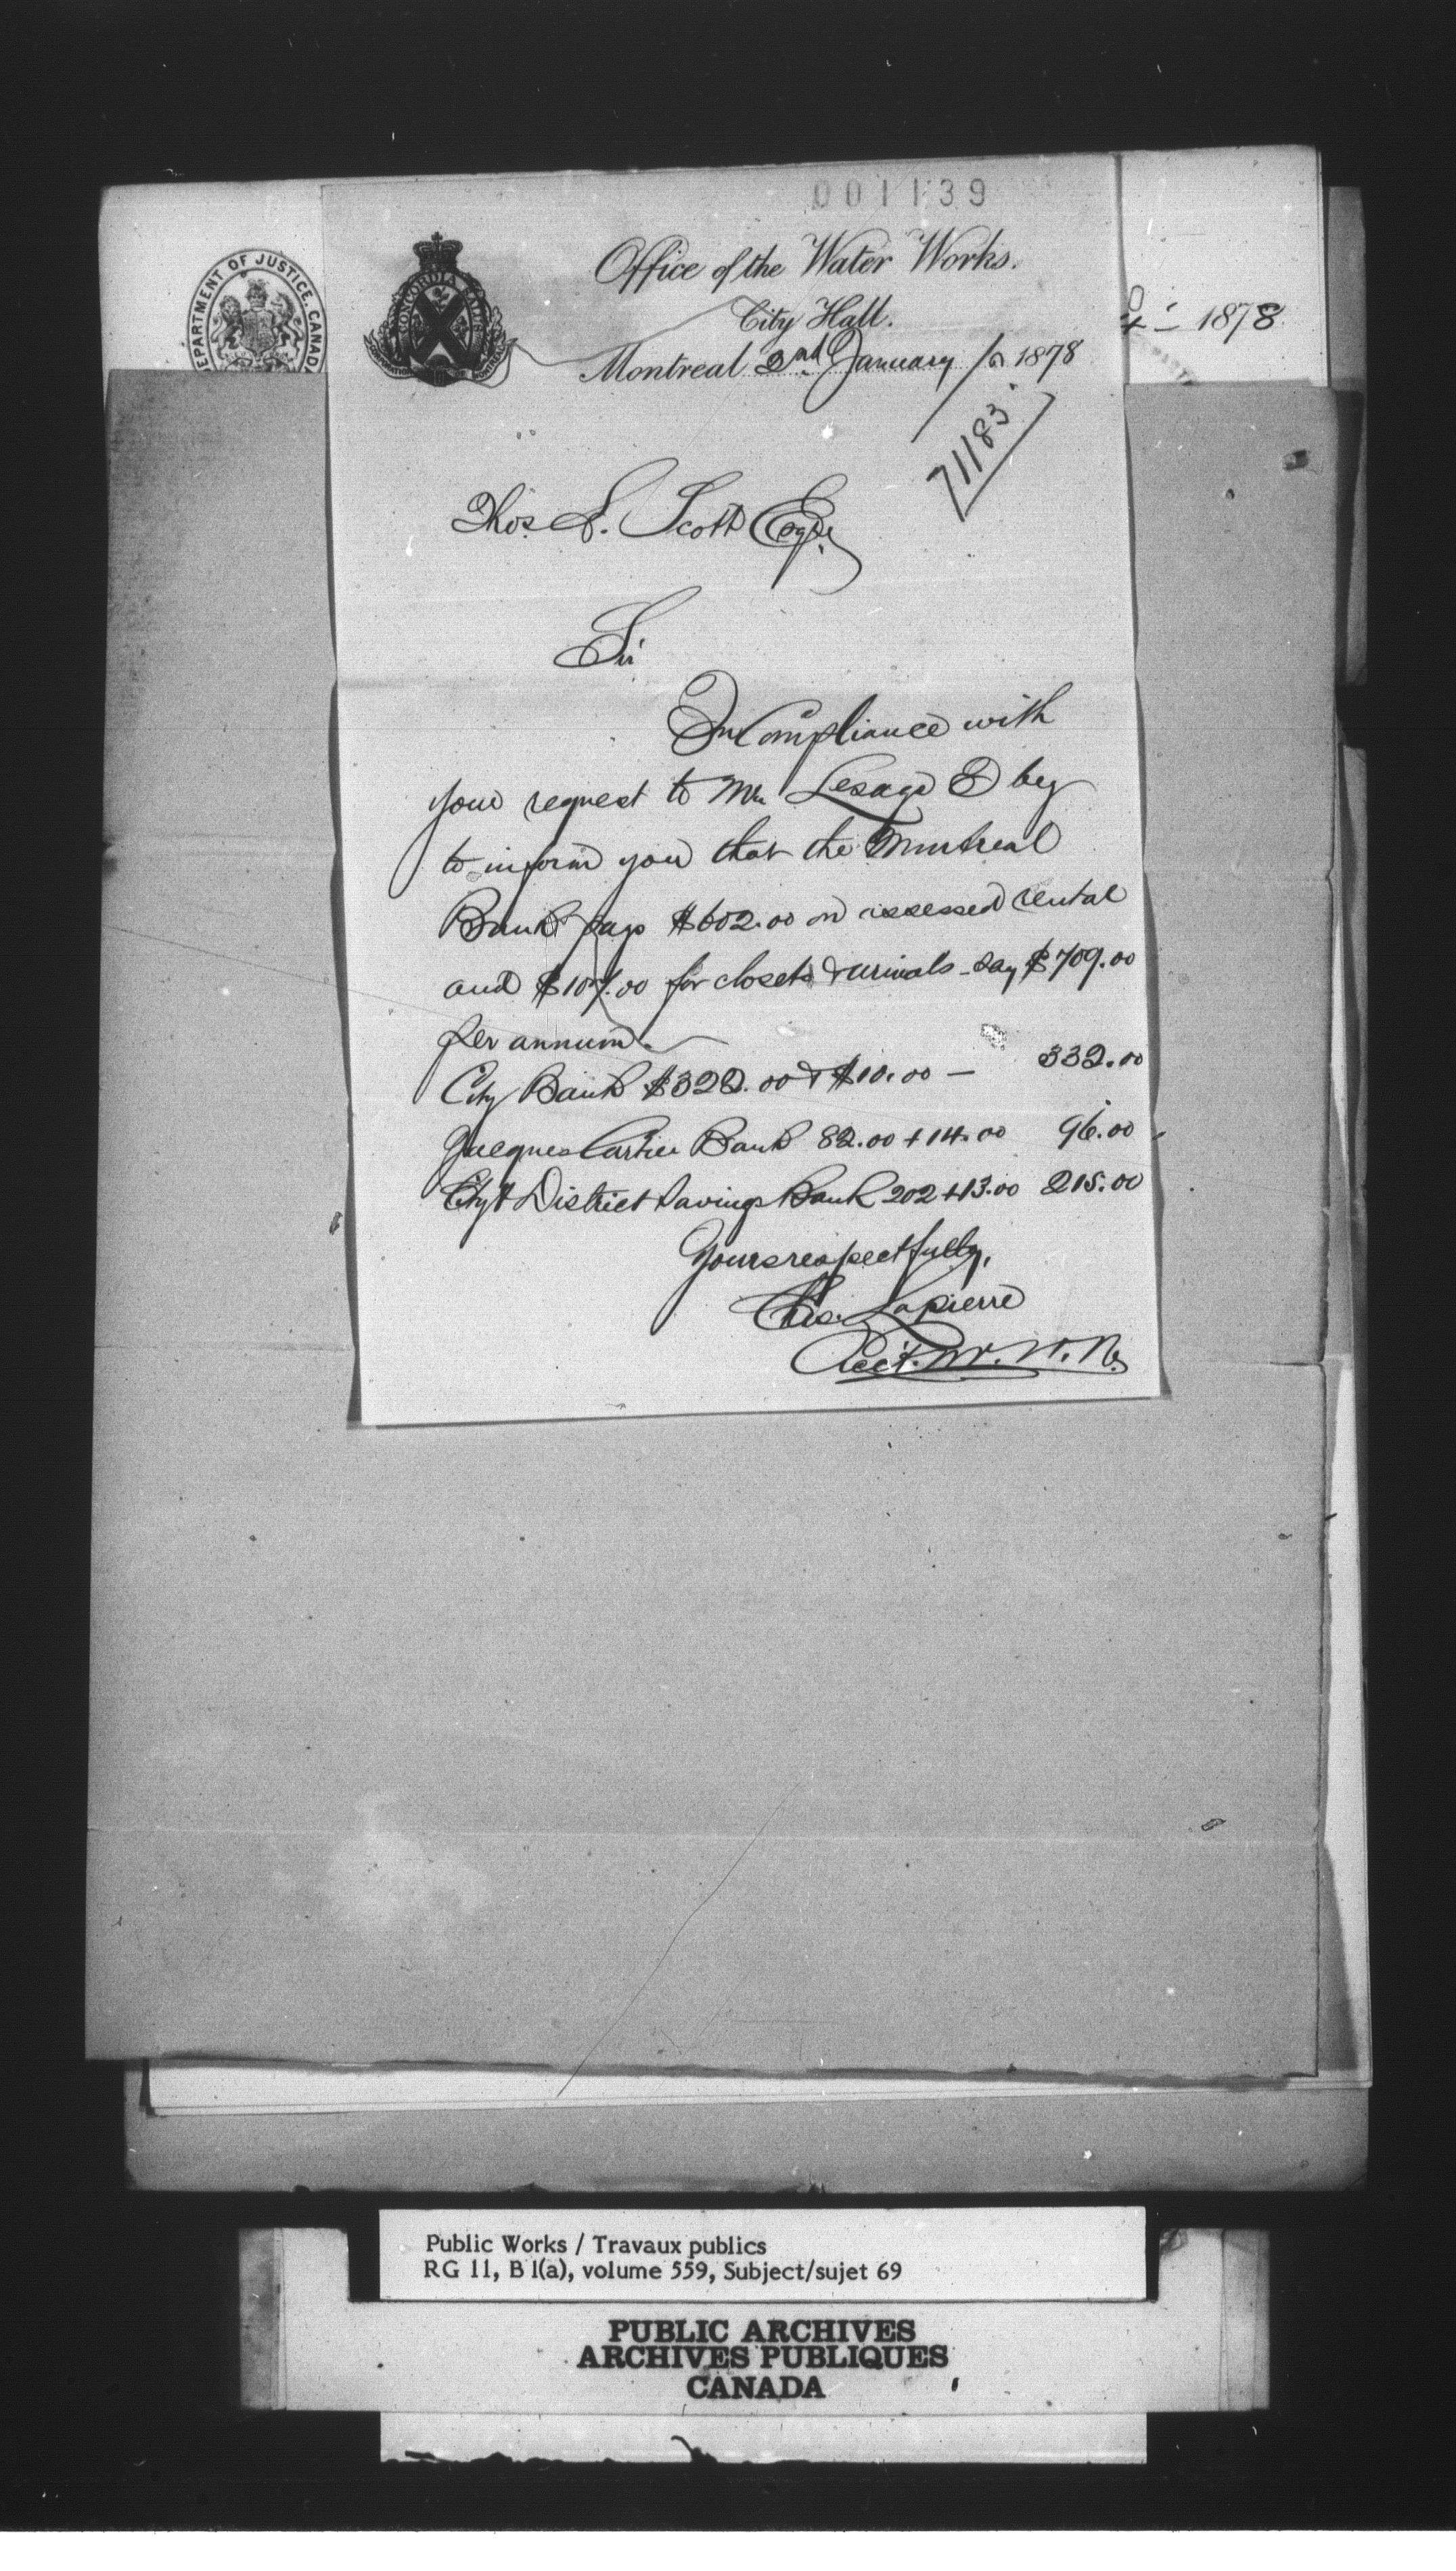 001139
DEPARTMENT OF JUSTICE. CANADA
CONCORDIA SALUS
Office of the Water Works.
City Hall.
Montreal 2nd January 1878
1878
71183
Thos. S. Scott Esqre.
Sir
In Compliance with
your request to Mr Lesage I beg
to inform you that the Montreal
Bank pays $602.00 on assessed rental
and $107.00 for closets & urinals - say $709.00
per annum.
City Bank $322.00 & $10.00 — 332.00
Jacques Cartier Bank 82.00 + 14.00 96.00
City & District Savings Bank 202 + 13.00 215.00
Yours respectfully,
Chs. Lapierre
Acct. M. W. W.
Public Works / Travaux publics
RG 11, B 1(a), volume 559, Subject/sujet 69
PUBLIC ARCHIVES
ARCHIVES PUBLIQUES
CANADA